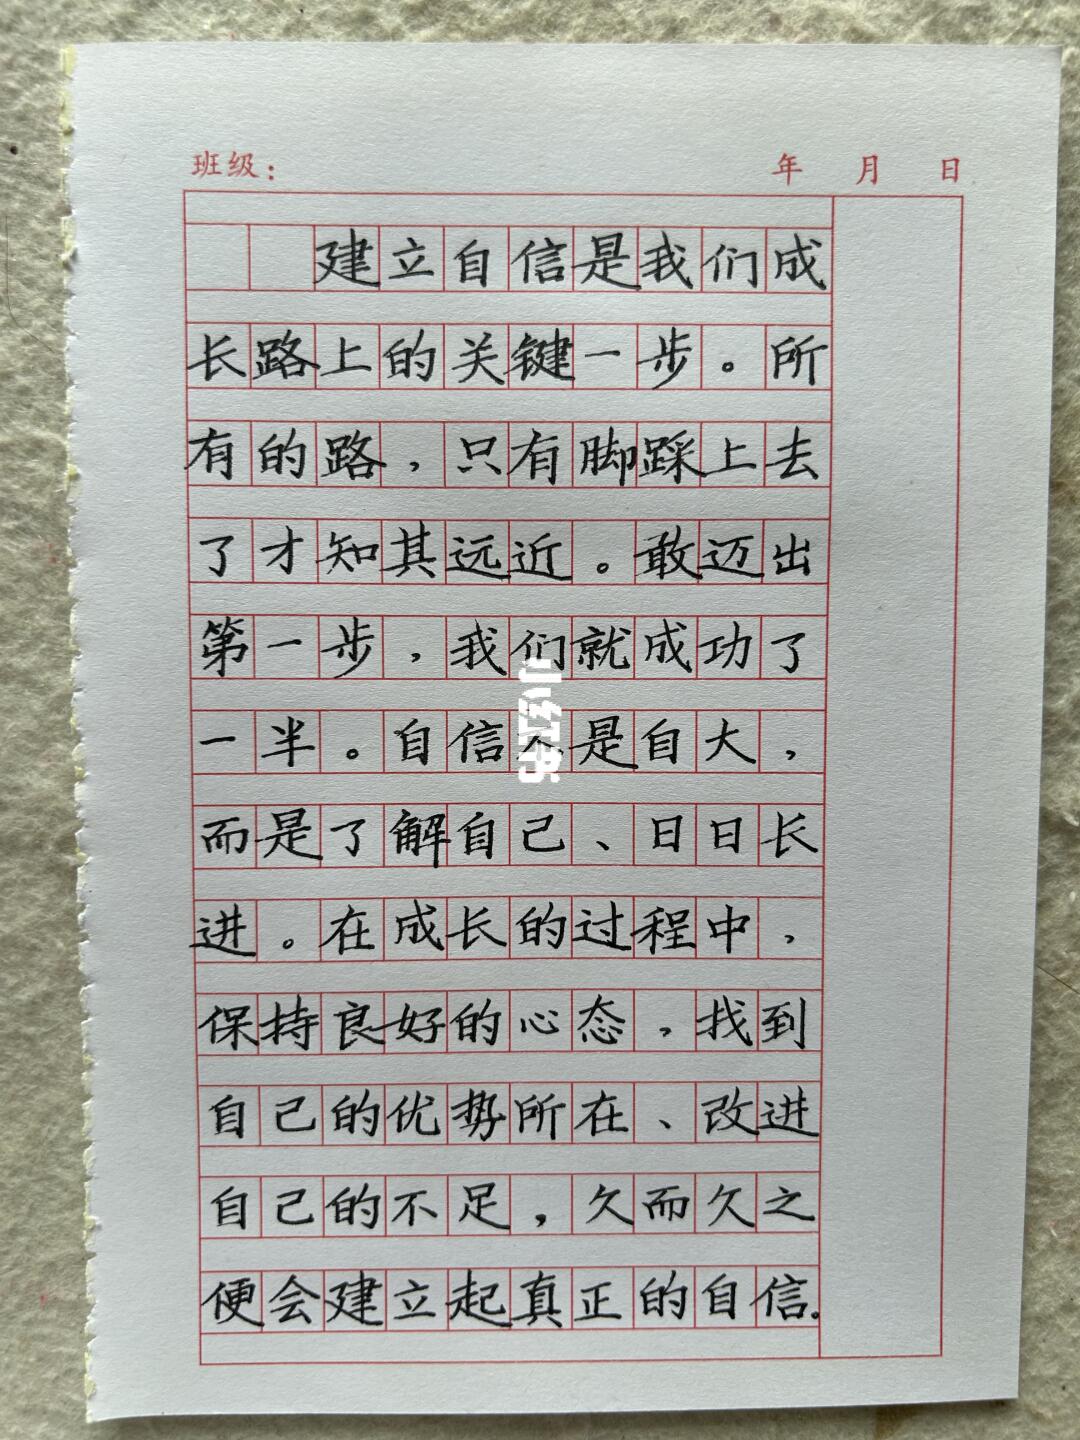 班级： 年 月 日
建立自信是我们成
长路上的关键一步。所
有的路，只有脚踩上去
了才知其远近。敢迈出
第一步，我们就成功了
一半。自信不是自大，
而是了解自己、日日长
进。在成长的过程中，
保持良好的心态，找到
自己的优势所在、改进
自己的不足，久而久之
便会建立起真正的自信。
小红书